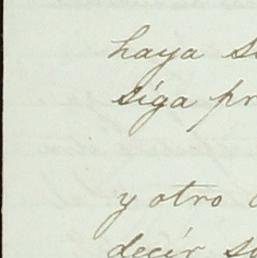 haya
siga
y otro
decir